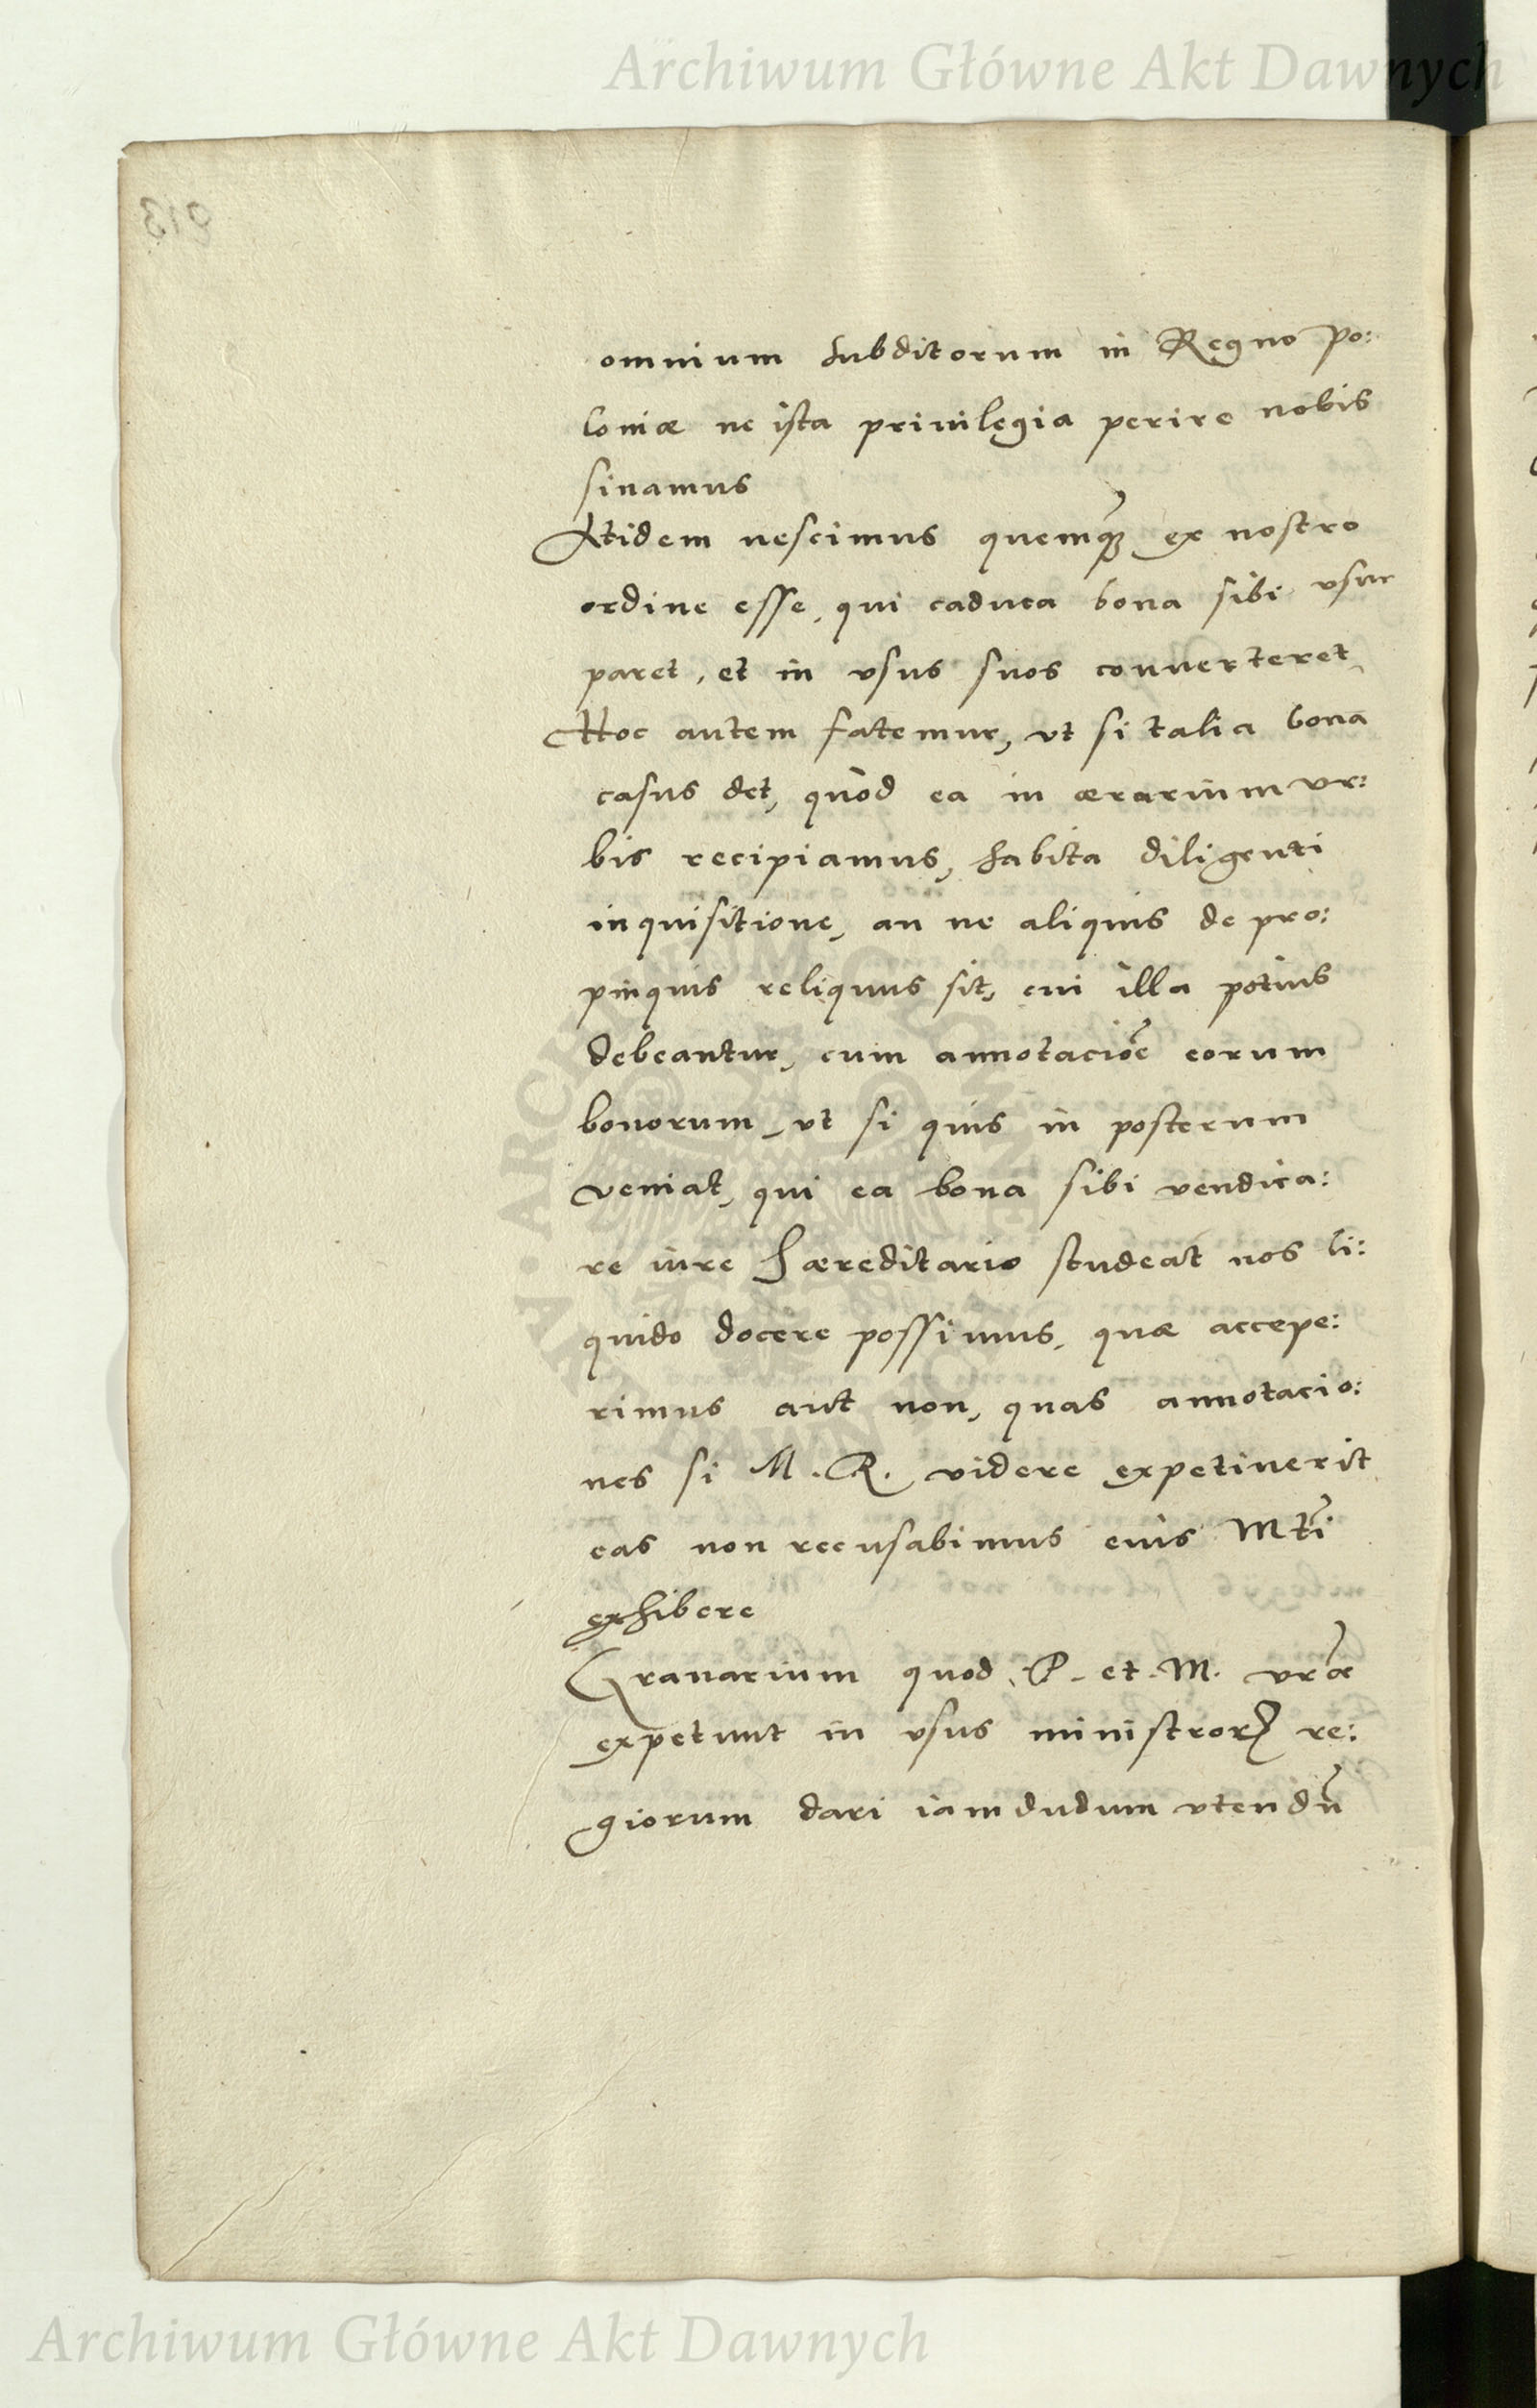 Archiwum Główne Akt Dawnych
omnium subditorum in Regno Po:
loniæ ne ista priuilegia perire nobis
sinamus
Itidem nescimus quemqȝ ex nostro
ordine esse, qui caduca bona sibi vsur
paret, et in vsus suos conuerteret
Hoc autem fatemur, vt si talia bona
casus det, quòd ea in ærarium vr:
bis recipiamus, habita diligenti
inquisitione, an ne aliquis de pro:
pinquis reliquus sit, cui illa potius
debeantur, cum annotaciõe eorum
bonorum, vt si quis in posterum
veniat, qui ea bona sibi vendica:
re iure hæreditario studeat nos li:
quido docere possimus, quæ accepe:
rimus aut non, quas annotacio:
nes si M. R. videre expetiuerit
eas non recusabimus eius Mti
exhibere
Granarium quod P. et M. vræ
expetunt in vsus ministrorꝝ re:
giorum dari iamdudum vtendũ
ARCHIWUM GŁÓWNE AKT DAWNYCH
Archiwum Główne Akt Dawnych